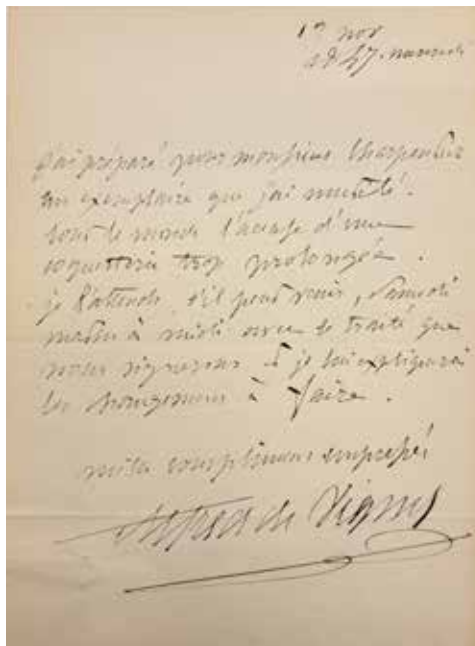 1er nov
1847. mercredi
j'ai préparé pour monsieur Charpentier
un exemplaire que j'ai
tout le monde l'accuse d'une
coquetterie trop prolongée.
je l'attends, s'il peut venir, Samedi
matin à midi avec le traité que
nous signerons et je lui expliquerai
les changemens à faire.
mille complimens empressés
Alfred de Vigny